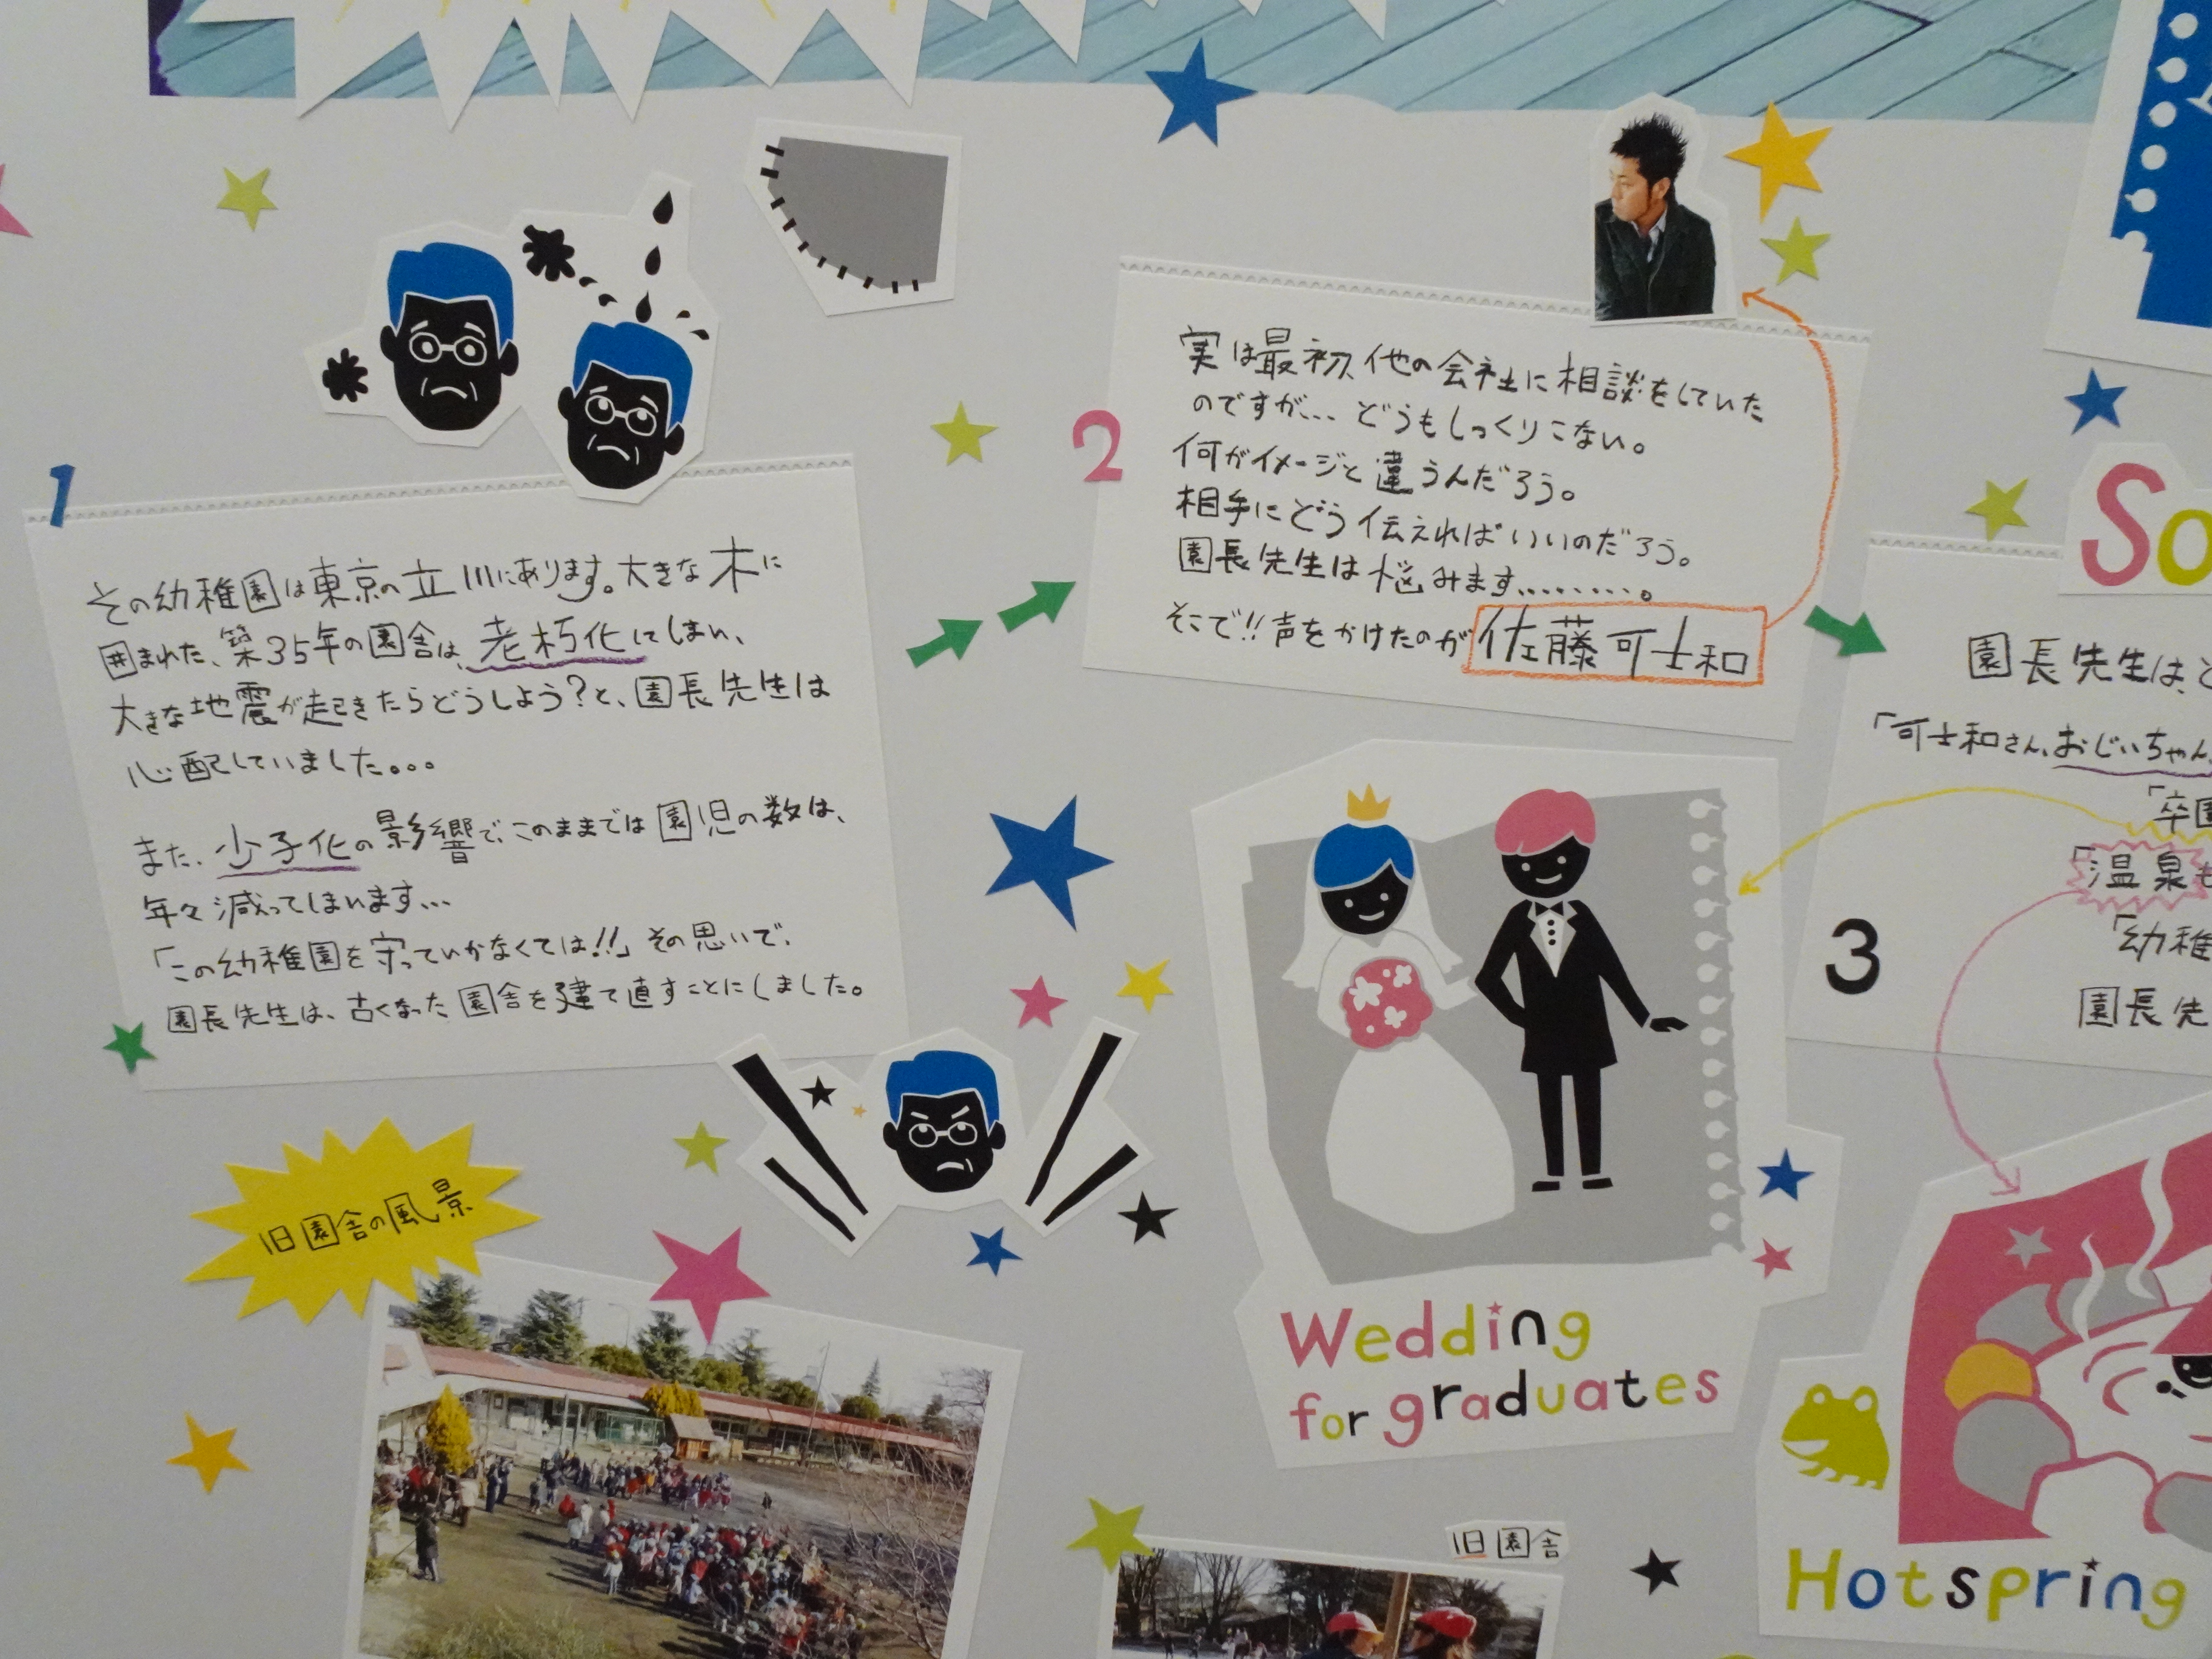 1
その幼稚園は東京の立川にあります。大きな木に
囲まれた、築35年の園舎は、老朽化してしまい、
大きな地震が起きたらどうしよう?と、園長先生は
心配していました。。。
また、少子化の影響で、このままでは園児の数は、
年々減ってしまいます...
「この幼稚園を守っていかなくては!!」その思いで、
園長先生は、古くなった園舎を建て直すことにしました。
2
実は最初、他の会社に相談をしていた
のですが... どうもしっくりこない。
何がイメージと違うんだろう。
相手にどう伝えればいいのだろう。
園長先生は悩みます.........。
そこで!!声をかけたのが佐藤可士和
3
園長先生は、
「可士和さん、おじいちゃん
「卒園
「温泉も
「幼稚
園長先
So
Wedding
for graduates
Hotspring
旧園舎の風景
旧園舎